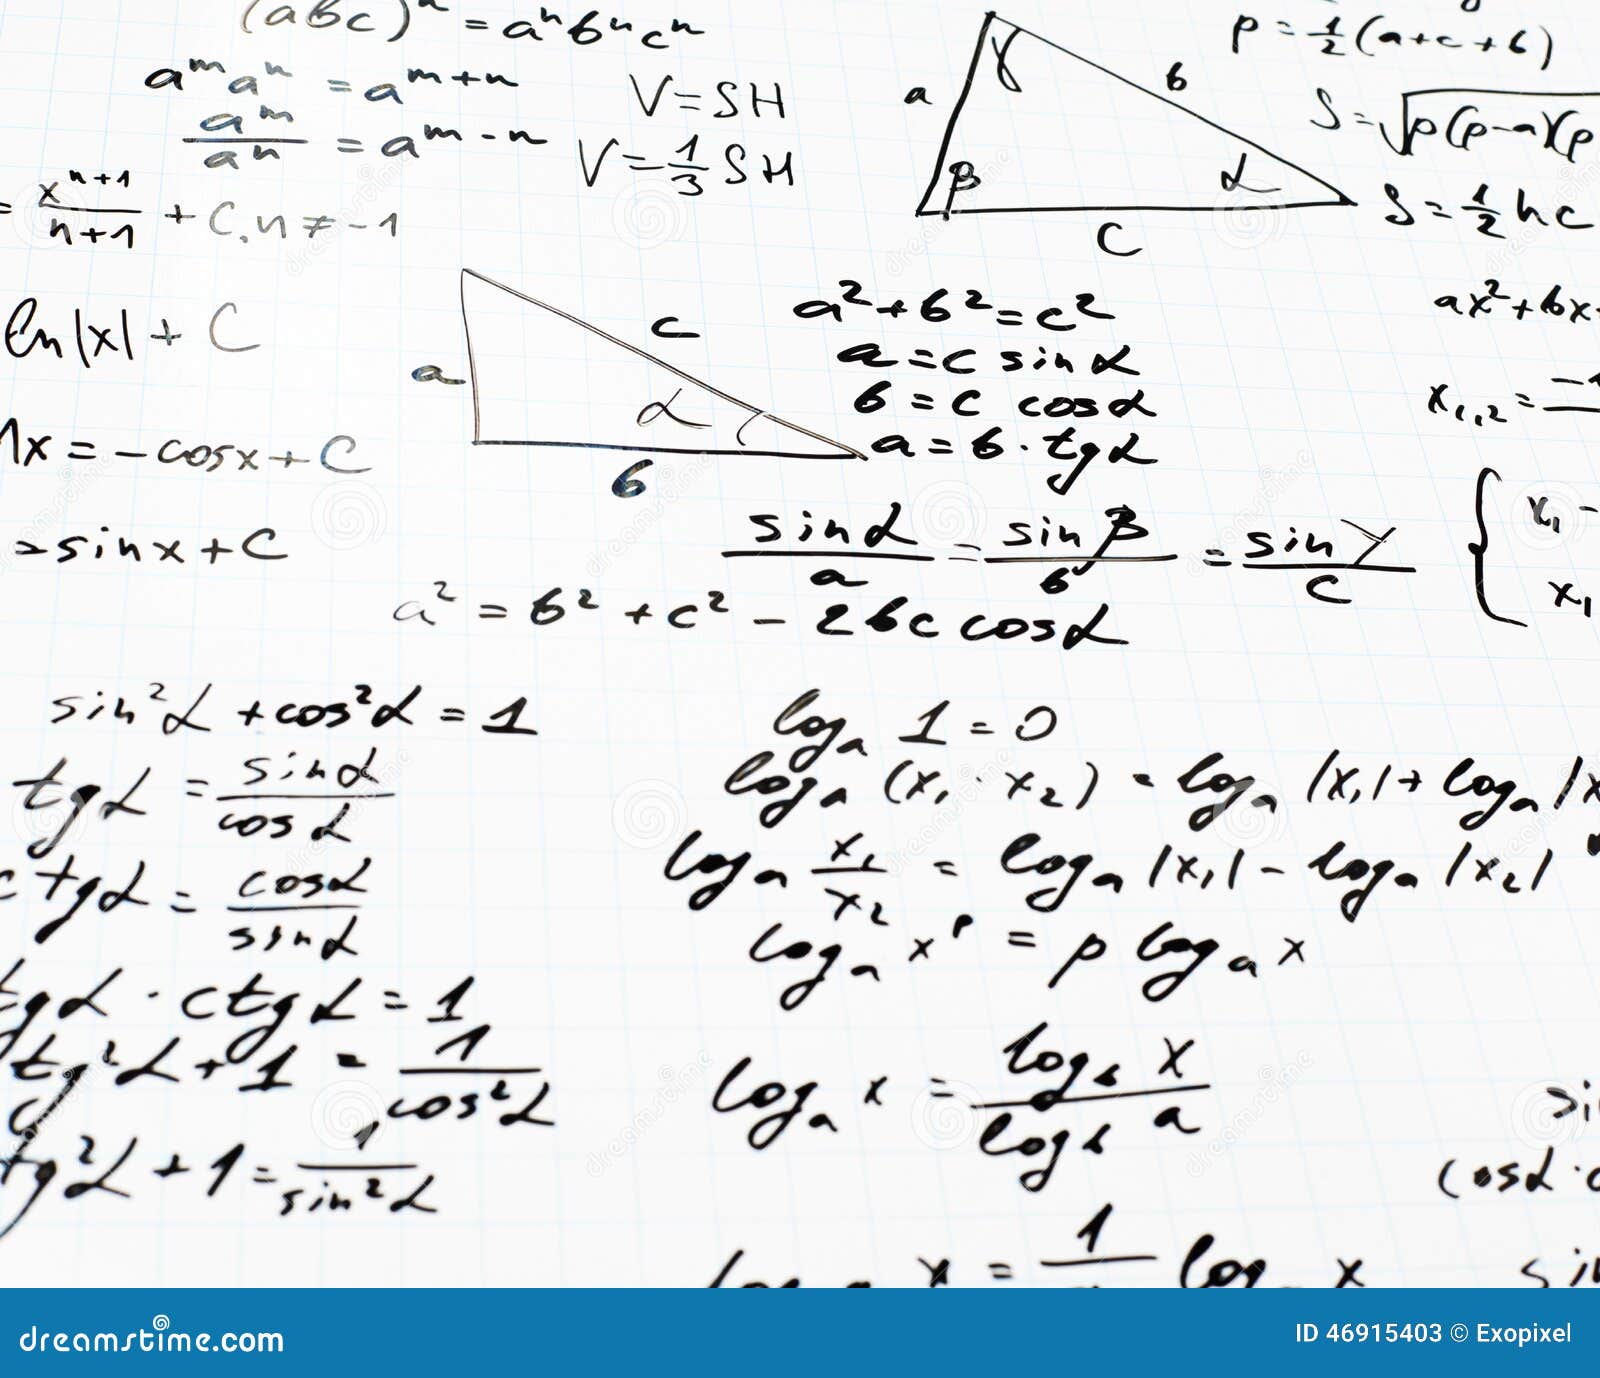 (abc)ⁿ = aⁿbⁿcⁿ
aᵐaⁿ = aᵐ⁺ⁿ
aᵐ/aⁿ = aᵐ⁻ⁿ
= xⁿ⁺¹/(n+1) + C, n ≠ -1
ln|x| + C
x = -cosx + C
= sinx + C
V = SH
V = 1/3 SH
a
b
c
α
a
b
γ
β
α
C
p = 1/2 (a+c+b)
S = √p(p-a)(p
S = 1/2 hc
a² + b² = c²
a = c sinα
b = c cosα
a = b · tgα
ax² + bx
x₁,₂ = -
sinα/a = sinβ/b = sinγ/c
a² = b² + c² - 2bc cosα
{ x₁ -
x₁
sin²α + cos²α = 1
tgα = sinα/cosα
ctgα = cosα/sinα
tgα · ctgα = 1
tg²α + 1 = 1/cos²α
ctg²α + 1 = 1/sin²α
logₐ 1 = 0
logₐ (x₁ · x₂) = logₐ |x₁| + logₐ |x
logₐ x₁/x₂ = logₐ |x₁| - logₐ |x₂|
logₐ xᵖ = p logₐ x
logₐ x = log_b x / log_b a
x = 1/ log x
si
cosα ·
sin
dreamstime.com
ID 46915403 © Exopixel